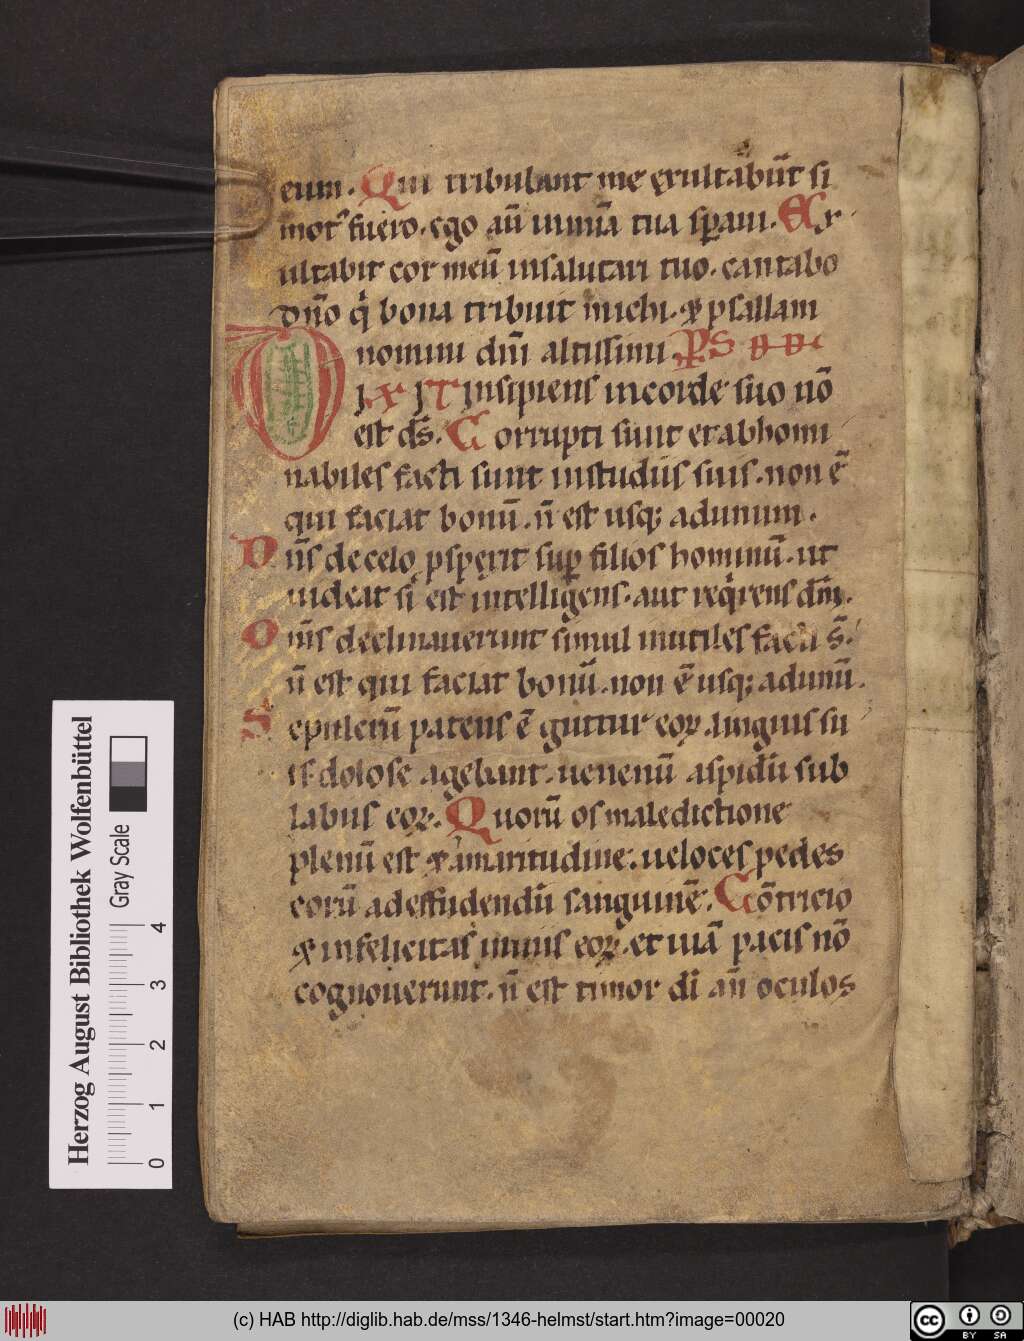 eum. Qui tribulant me exultabūt si
mot⁹ fuero. ego aū in mīā tua spaui. Ex
ultabit cor meū insalutari tuo. cantabo
dño q̇ bona tribuit michi. ⁊ psallam
nomini dñi altissimi. Ps dd
DIXIT insipiens incorde suo nō
est ds̄. Corrupti sunt et abhomi
nabiles facti sunt instudiis suis. non ē
qui faciat bonū. n̄ est usq; adunum.
Dn̄s decelo pspexit sup filios hominū. ut
uideat si est intelligens. aut req̇rens dm̄.
Om̄s declinauerunt simul inutiles facti s̄.
n̄ est qui faciat bonū. non ē usq; adunū.
Sepulcrū patens ē guttur eoꝝ. linguis su
is dolose agebant. uenenū aspidū sub
labiis eoꝝ. Quorū os maledictione
plenū est ⁊ amaritudine. ueloces pedes
eorū adeffudendū sanguinē. Cōtricio
⁊ infelicitas inuiis eoꝝ. et uiā pacis nō
cognouerunt. n̄ est timor dī an̄ oculos
Herzog August Bibliothek Wolfenbüttel
Gray Scale
0 1 2 3 4
(c) HAB http://diglib.hab.de/mss/1346-helmst/start.htm?image=00020
cc BY SA